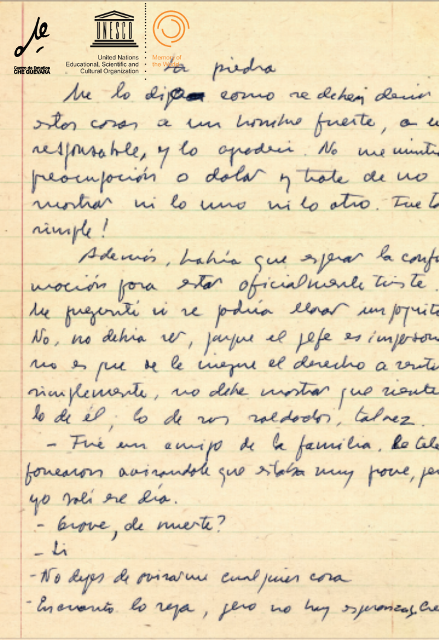 Centro de Estudios
CHE GUEVARA
UNESCO
United Nations
Educational, Scientific and
Cultural Organization
Memory of
the World
La piedra
Me lo dijo como se deben decir
estas cosas a un hombre fuerte, a un
responsable, y lo agradecí. No me mintió
preocupación o dolor y traté de no
mostrar ni lo uno ni lo otro. Fue ta
simple!
Además, había que esperar la confir
mación para estar oficialmente triste.
Me pregunté si se podía llorar un poquito
No, no debía ser, porque el jefe es imperson
no es que se le niegue el derecho a sentir
simplemente, no debe mostrar que siente
lo de él; lo de sus soldados, tal vez.
- Fue un amigo de la familia, le tele
fonearon avisándole que estaba muy grave, per
yo salí ese día.
- Grave, de muerte?
- Si
- No dejes de avisarme cualquier cosa
- En cuanto lo sepa, pero no hay esperanzas, Cre